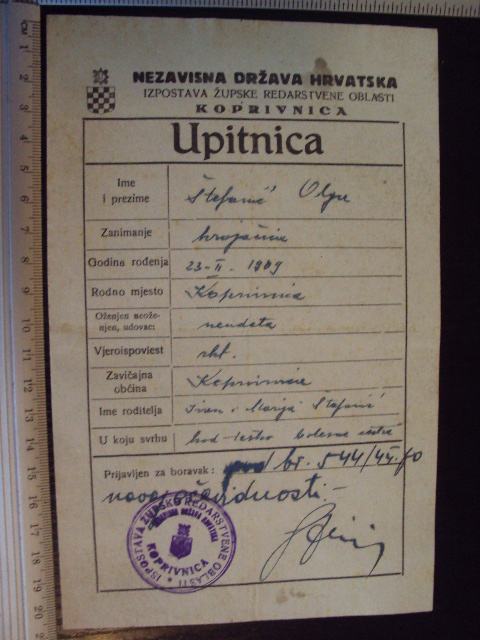 NEZAVISNA DRŽAVA HRVATSKA
IZPOSTAVA ŽUPSKE REDARSTVENE OBLASTI
KOPRIVNICA
Upitnica
Ime i prezime Štefanić Olga
Zanimanje krojačica
Godina rođenja 23-II. 1909
Rodno mjesto Koprivnica
Oženjen neože-
njen, udovac: neudata
Vjeroispoviest rkt.
Zavičajna
obćina Koprivnica
Ime roditelja Ivan i Marija Štefanić
U koju svrhu kod teško bolesne
Prijavljen za boravak: pod br. 544/45.
očevidnosti-
IZPOSTAVA ŽUPSKE REDARSTVENE OBLASTI
NEZAVISNA DRŽAVA HRVATSKA
KOPRIVNICA
CM 1 2 3 4 5 6 7 8 9 10 11 12 13 14 15 16 17 18 19 20